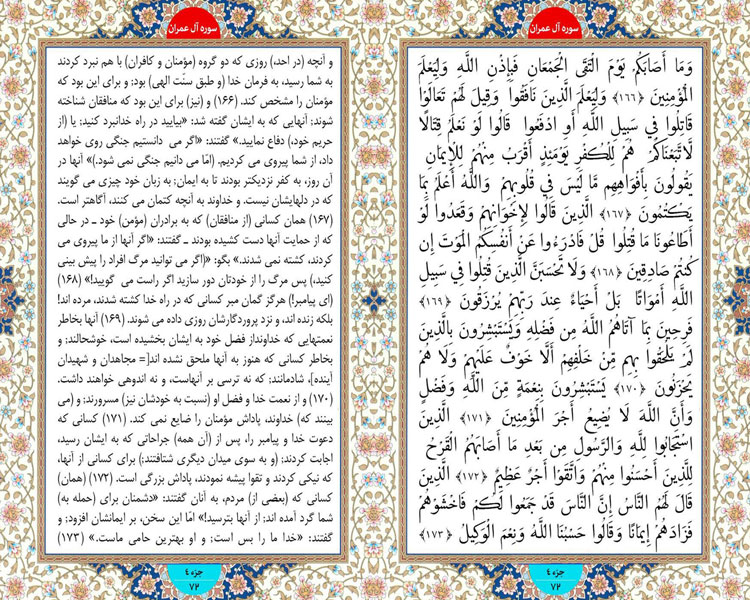 سوره آل عمران
وَمَا أَصَابَكُمْ يَوْمَ الْتَقَى الْجَمْعَانِ فَبِإِذْنِ اللَّهِ وَلِيَعْلَمَ
الْمُؤْمِنِينَ ﴿۱۶۶﴾ وَلِيَعْلَمَ الَّذِينَ نَافَقُوا وَقِيلَ لَهُمْ تَعَالَوْا
قَاتِلُوا فِي سَبِيلِ اللَّهِ أَوِ ادْفَعُوا قَالُوا لَوْ نَعْلَمُ قِتَالًا
لَاتَّبَعْنَاكُمْ هُمْ لِلْكُفْرِ يَوْمَئِذٍ أَقْرَبُ مِنْهُمْ لِلْإِيمَانِ
يَقُولُونَ بِأَفْوَاهِهِمْ مَا لَيْسَ فِي قُلُوبِهِمْ وَاللَّهُ أَعْلَمُ بِمَا
يَكْتُمُونَ ﴿۱۶۷﴾ الَّذِينَ قَالُوا لِإِخْوَانِهِمْ وَقَعَدُوا لَوْ
أَطَاعُونَا مَا قُتِلُوا قُلْ فَادْرَءُوا عَنْ أَنْفُسِكُمُ الْمَوْتَ إِنْ
كُنْتُمْ صَادِقِينَ ﴿۱۶۸﴾ وَلَا تَحْسَبَنَّ الَّذِينَ قُتِلُوا فِي سَبِيلِ
اللَّهِ أَمْوَاتًا بَلْ أَحْيَاءٌ عِنْدَ رَبِّهِمْ يُرْزَقُونَ ﴿۱۶۹﴾
فَرِحِينَ بِمَا آتَاهُمُ اللَّهُ مِنْ فَضْلِهِ وَيَسْتَبْشِرُونَ بِالَّذِينَ
لَمْ يَلْحَقُوا بِهِمْ مِنْ خَلْفِهِمْ أَلَّا خَوْفٌ عَلَيْهِمْ وَلَا هُمْ
يَحْزَنُونَ ﴿۱۷۰﴾ يَسْتَبْشِرُونَ بِنِعْمَةٍ مِنَ اللَّهِ وَفَضْلٍ
وَأَنَّ اللَّهَ لَا يُضِيعُ أَجْرَ الْمُؤْمِنِينَ ﴿۱۷۱﴾ الَّذِينَ
اسْتَجَابُوا لِلَّهِ وَالرَّسُولِ مِنْ بَعْدِ مَا أَصَابَهُمُ الْقَرْحُ
لِلَّذِينَ أَحْسَنُوا مِنْهُمْ وَاتَّقَوْا أَجْرٌ عَظِيمٌ ﴿۱۷۲﴾ الَّذِينَ
قَالَ لَهُمُ النَّاسُ إِنَّ النَّاسَ قَدْ جَمَعُوا لَكُمْ فَاخْشَوْهُمْ
فَزَادَهُمْ إِيمَانًا وَقَالُوا حَسْبُنَا اللَّهُ وَنِعْمَ الْوَكِيلُ ﴿۱۷۳﴾
جزء ٤
۷۲
سوره آل عمران
و آنچه (در احد،) روزی که دو گروه (مؤمنان و کافران) با هم نبرد کردند
به شما رسید، به فرمان خدا (و طبق سنّت الهی) بود؛ و برای این بود که
مؤمنان را مشخص کند. (۱۶۶) و (نیز) برای این بود که منافقان شناخته
شوند؛ آنهایی که به ایشان گفته شد: «بیایید در راه خدانبرد کنید؛ یا (از
حریم خود،) دفاع نمایید.» گفتند: «اگر می دانستیم جنگی روی خواهد
داد، از شما پیروی می کردیم. (امّا می دانیم جنگی نمی شود.)» آنها در
آن روز، به کفر نزدیکتر بودند تا به ایمان؛ به زبان خود چیزی می گویند
که در دلهایشان نیست. و خداوند به آنچه کتمان می کنند، آگاهتر است.
(۱۶۷) همان کسانی (از منافقان) که به برادران (مؤمن) خود ـ در حالی
که از حمایت آنها دست کشیده بودند ـ گفتند: «اگر آنها از ما پیروی می
کردند، کشته نمی شدند.» بگو: «(اگر می توانید مرگ افراد را پیش بینی
کنید،) پس مرگ را از خودتان دور سازید اگر راست می گویید!» (۱۶۸)
(ای پیامبر!) هرگز گمان مبر کسانی که در راه خدا کشته شدند، مرده اند!
بلکه زنده اند، و نزد پروردگارشان روزی داده می شوند. (۱۶۹) آنها بخاطر
نعمتهایی که خداونداز فضل خود به ایشان بخشیده است، خوشحالند؛ و
بخاطر کسانی که هنوز به آنها ملحق نشده اند[= مجاهدان و شهیدان
آینده]، شادمانند؛ که نه ترسی بر آنهاست، و نه اندوهی خواهند داشت.
(۱۷۰) و از نعمت خدا و فضل او (نسبت به خودشان نیز) مسرورند؛ و (می
بینند که) خداوند، پاداش مؤمنان را ضایع نمی کند. (۱۷۱) کسانی که
دعوت خدا و پیامبر را، پس از (آن همه) جراحاتی که به ایشان رسید،
اجابت کردند؛ (و به سوی میدان دیگری شتافتند؛) برای کسانی از آنها،
که نیکی کردند و تقوا پیشه نمودند، پاداش بزرگی است. (۱۷۲) (همان)
کسانی که (بعضی از) مردم، به آنان گفتند: «دشمنان برای (حمله به)
شما گرد آمده اند؛ از آنها بترسید!» امّا این سخن، بر ایمانشان افزود؛ و
گفتند: «خدا ما را بس است؛ و او بهترین حامی ماست.» (۱۷۳)
جزء ٤
۷۲